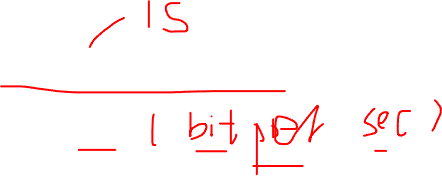 1s
1 bit per sec)